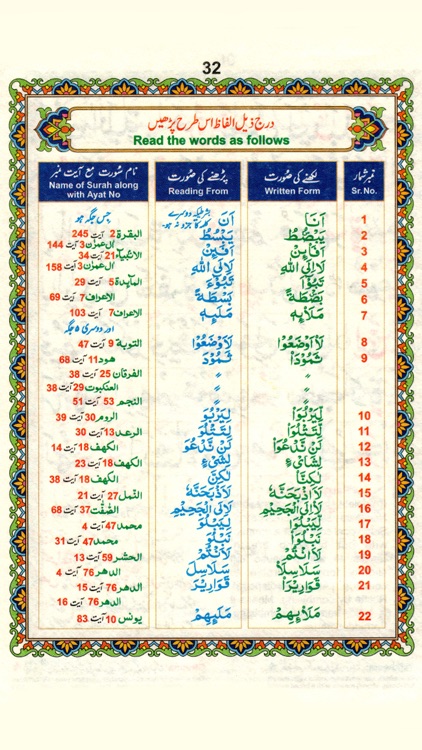 32
درج ذیل الفاظ اس طرح پڑھیں
Read the words as follows
نمبر شمار Sr. No. لکھنے کی صورت Written Form پڑھنے کی صورت Reading From نام سورت مع آیت نمبر Name of Surah along with Ayat No
1 اَنَا اَنَ جس جگہ ہو
2 يَبْصُۜطُ يَبْسُطُ البقرة 2 آیت 245
3 اَفَا۟ئِنْ اَفَئِنْ آل عمرٰن 3 آیت 144
الانبیآء 21 آیت 34
4 لَا۟اِلَى اللّٰهِ لَاِلَى اللّٰهِ آل عمرٰن 3 آیت 158
5 تَبُوْٓءَا۟ تَبُوْٓءَ المآئدة 5 آیت 29
6 بَصْۜطَةً بَسْطَةً الاعراف 7 آیت 69
7 مَلَا۟ئِهٖ مَلَئِهٖ الاعراف 7 آیت 103
اور دوسری 5 جگہ
8 لَا۟اَوْضَعُوْا لَاَوْضَعُوْا التوبة 9 آیت 47
9 ثَمُوْدَا۟ ثَمُوْدَ هود 11 آیت 68
〃 〃 الفرقان 25 آیت 38
〃 〃 العنكبوت 29 آیت 38
〃 〃 النجم 53 آیت 51
10 لِيَرْبُوَا۟ لِيَرْبُوَ الروم 30 آیت 39
11 لِتَتْلُوَا۟ لِتَتْلُوَ الرعد 13 آیت 30
12 لَنْ نَّدْعُوَا۟ لَنْ نَّدْعُوَ الكهف 18 آیت 14
13 لِشَا۟یْءٍ لِشَیْءٍ الكهف 18 آیت 23
14 لٰكِنَّا۟ لٰكِنَّ الكهف 18 آیت 38
15 لَا۟اَذْبَحَنَّهٗ لَاَذْبَحَنَّهٗ النمل 27 آیت 21
16 لَا۟اِلَى الْجَحِيْمِ لَاِلَى الْجَحِيْمِ الصّٰفّٰت 37 آیت 68
17 لِيَبْلُوَا۟ لِيَبْلُوَ محمد 47 آیت 4
18 نَبْلُوَا۟ نَبْلُوَ محمد 47 آیت 31
19 لَا۟اَنْتُمْ لَاَنْتُمْ الحشر 59 آیت 13
20 سَلٰسِلَا۟ سَلٰسِلَ الدهر 76 آیت 4
21 قَوَارِيْرَا۟ قَوَارِيْرَ الدهر 76 آیت 15
الدهر 76 آیت 16
22 مَلَا۟ئِهِمْ مَلَئِهِمْ يونس 10 آیت 83